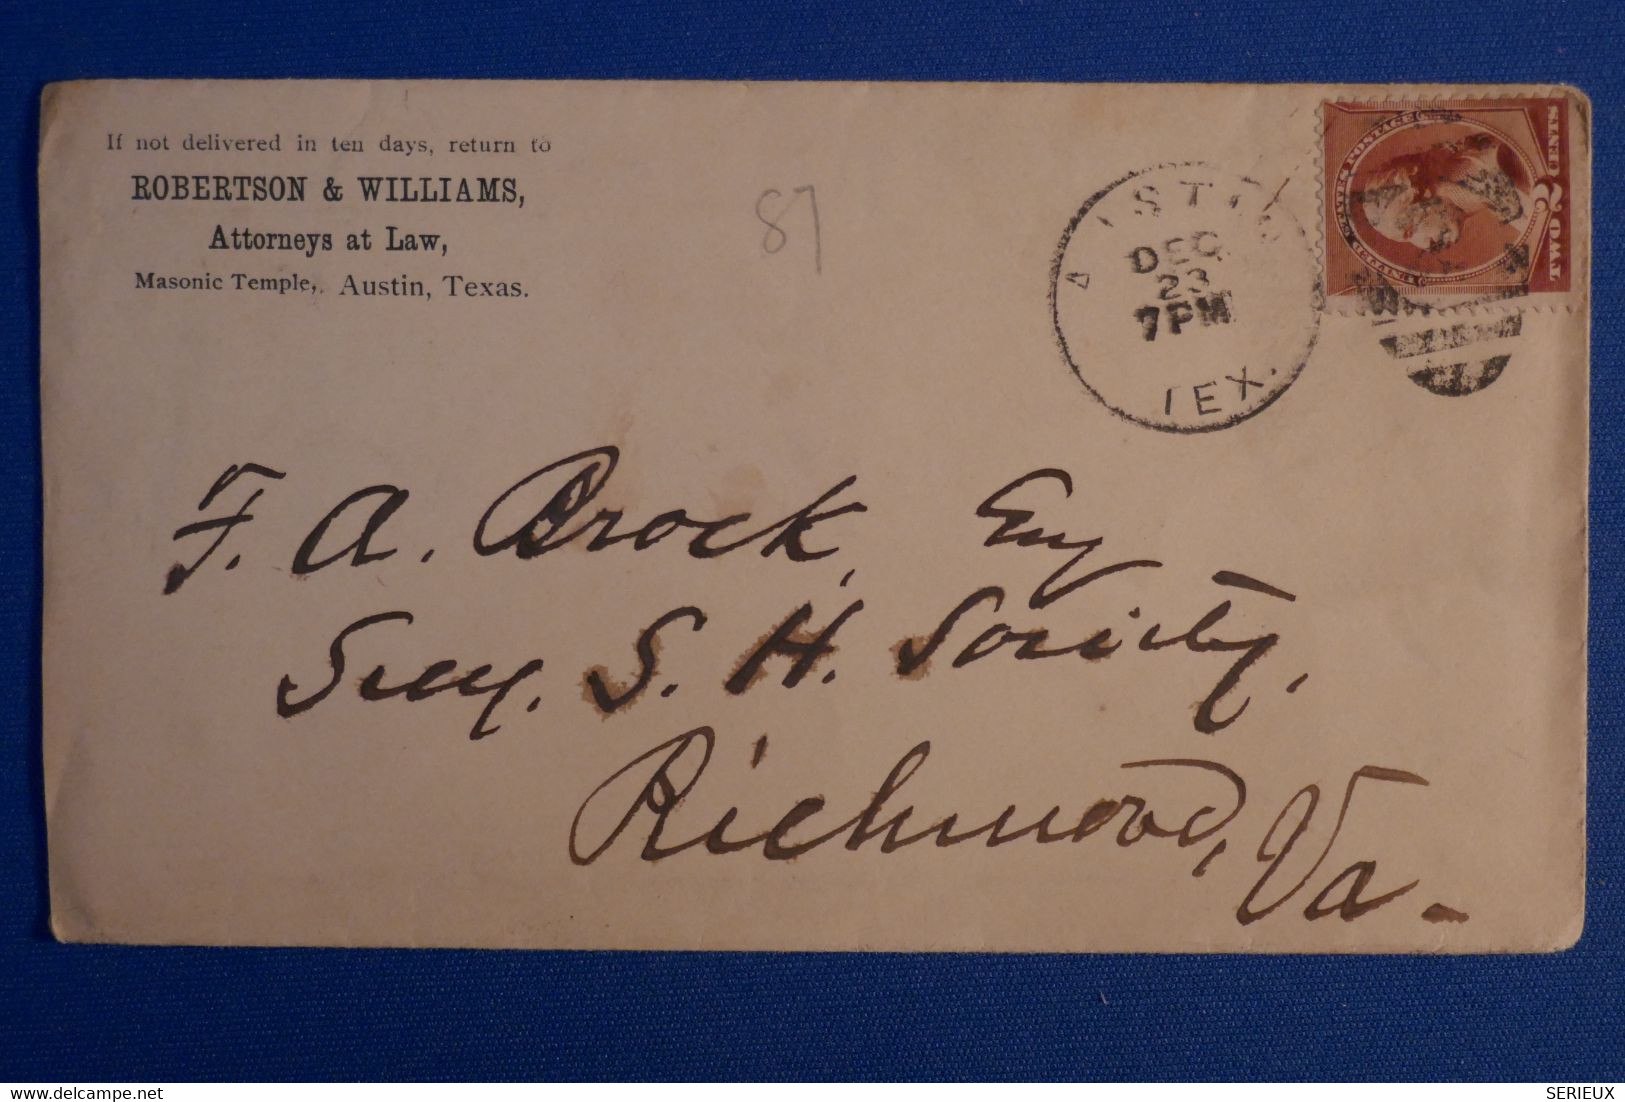 If not delivered in ten days, return to
ROBERTSON & WILLIAMS,
Attorneys at Law,
Masonic Temple, Austin, Texas.
87
AUSTIN
DEC
23
7PM
TEX.
UNITED STATES POSTAGE
2
F. A. Brock, Esq
Secy. S. H. Society,
Richmond, Va-
delcampe.net
SERIEUX